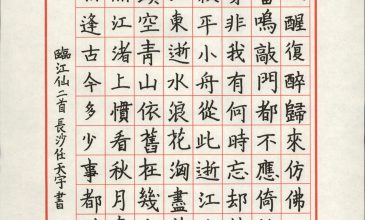 醒復醉歸來仿佛
鳴敲門都不應倚
非我有何時忘却
平小舟從此逝江
東逝水浪花淘盡
空青山依舊在幾
江渚上慣看秋月
逢古今多少事都
臨江仙二首 長沙任天宇書